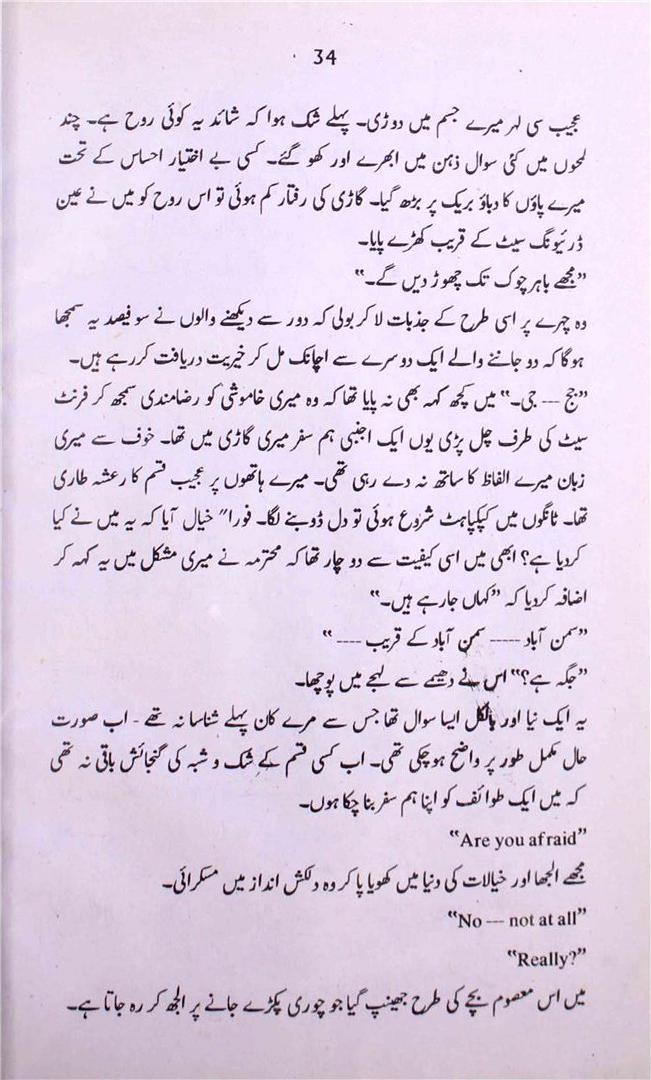 34
عجیب سی لہر میرے جسم میں دوڑی۔ پہلے شک ہوا کہ شائد یہ کوئی روح ہے۔ چند
لمحوں میں کئی سوال ذہن میں ابھرے اور کھو گئے۔ کسی بے اختیار احساس کے تحت
میرے پاؤں کا دباؤ بریک پر بڑھ گیا۔ گاڑی کی رفتار کم ہوئی تو اس روح کو میں نے عین
ڈرائیونگ سیٹ کے قریب کھڑے پایا۔
”مجھے باہر چوک تک چھوڑ دیں گے۔“
وہ چہرے پر اسی طرح کے جذبات لا کر بولی کہ دور سے دیکھنے والوں نے سو فیصد یہ سمجھا
ہوگا کہ دو جاننے والے ایک دوسرے سے اچانک مل کر خیریت دریافت کررہے ہیں۔
”جج --- جی۔“ میں کچھ کہہ بھی نہ پایا تھا کہ وہ میری خاموشی کو رضامندی سمجھ کر فرنٹ
سیٹ کی طرف چل پڑی یوں ایک اجنبی ہم سفر میری گاڑی میں تھا۔ خوف سے میری
زبان میرے الفاظ کا ساتھ نہ دے رہی تھی۔ میرے ہاتھوں پر عجیب قسم کا رعشہ طاری
تھا۔ ٹانگوں میں کپکپاہٹ شروع ہوئی تو دل ڈوبنے لگا۔ فورا" خیال آیا کہ یہ میں نے کیا
کردیا ہے؟ ابھی میں اسی کیفیت سے دو چار تھا کہ محترمہ نے میری مشکل میں یہ کہہ کر
اضافہ کردیا کہ ”کہاں جارہے ہیں۔“
”سمن آباد ----- سمن آباد کے قریب ---- “
”جگہ ہے؟“ اس نے دھیمے سے لہجے میں پوچھا۔
یہ ایک نیا اور بالکل ایسا سوال تھا جس سے مرے کان پہلے شناسا نہ تھے - اب صورت
حال مکمل طور پر واضح ہوچکی تھی۔ اب کسی قسم کے شک و شبہ کی گنجائش باقی نہ تھی
کہ میں ایک طوائف کو اپنا ہم سفر بنا چکا ہوں۔
”Are you afraid“
مجھے الجھا اور خیالات کی دنیا میں کھویا پا کر وہ دلکش انداز میں مسکرائی۔
”No --- not at all“
”Really?“
میں اس معصوم بچے کی طرح جھینپ گیا جو چوری پکڑے جانے پر الجھ کر رہ جاتا ہے۔